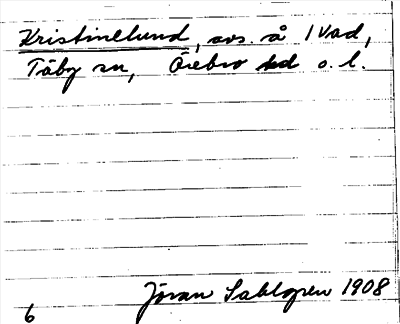 Kristinelund, avs. å Vad,
Täby sn, Örebro hd o. l.
Jöran Sahlgren 1908
6